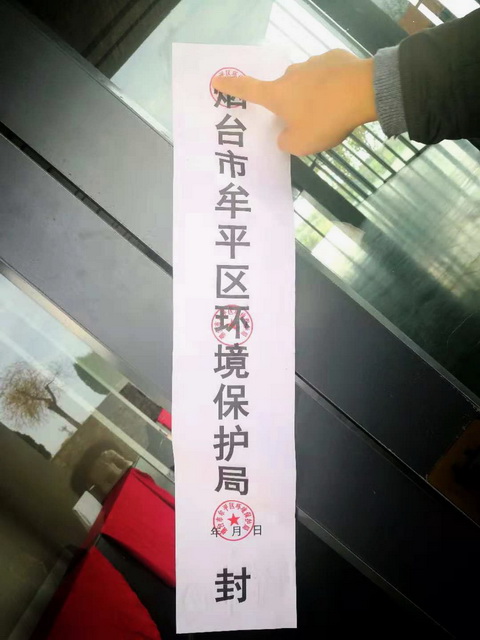 烟台市牟平区环境保护局
年 月 日
封